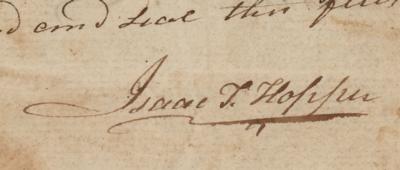 and seal this
Isaac T. Hopper